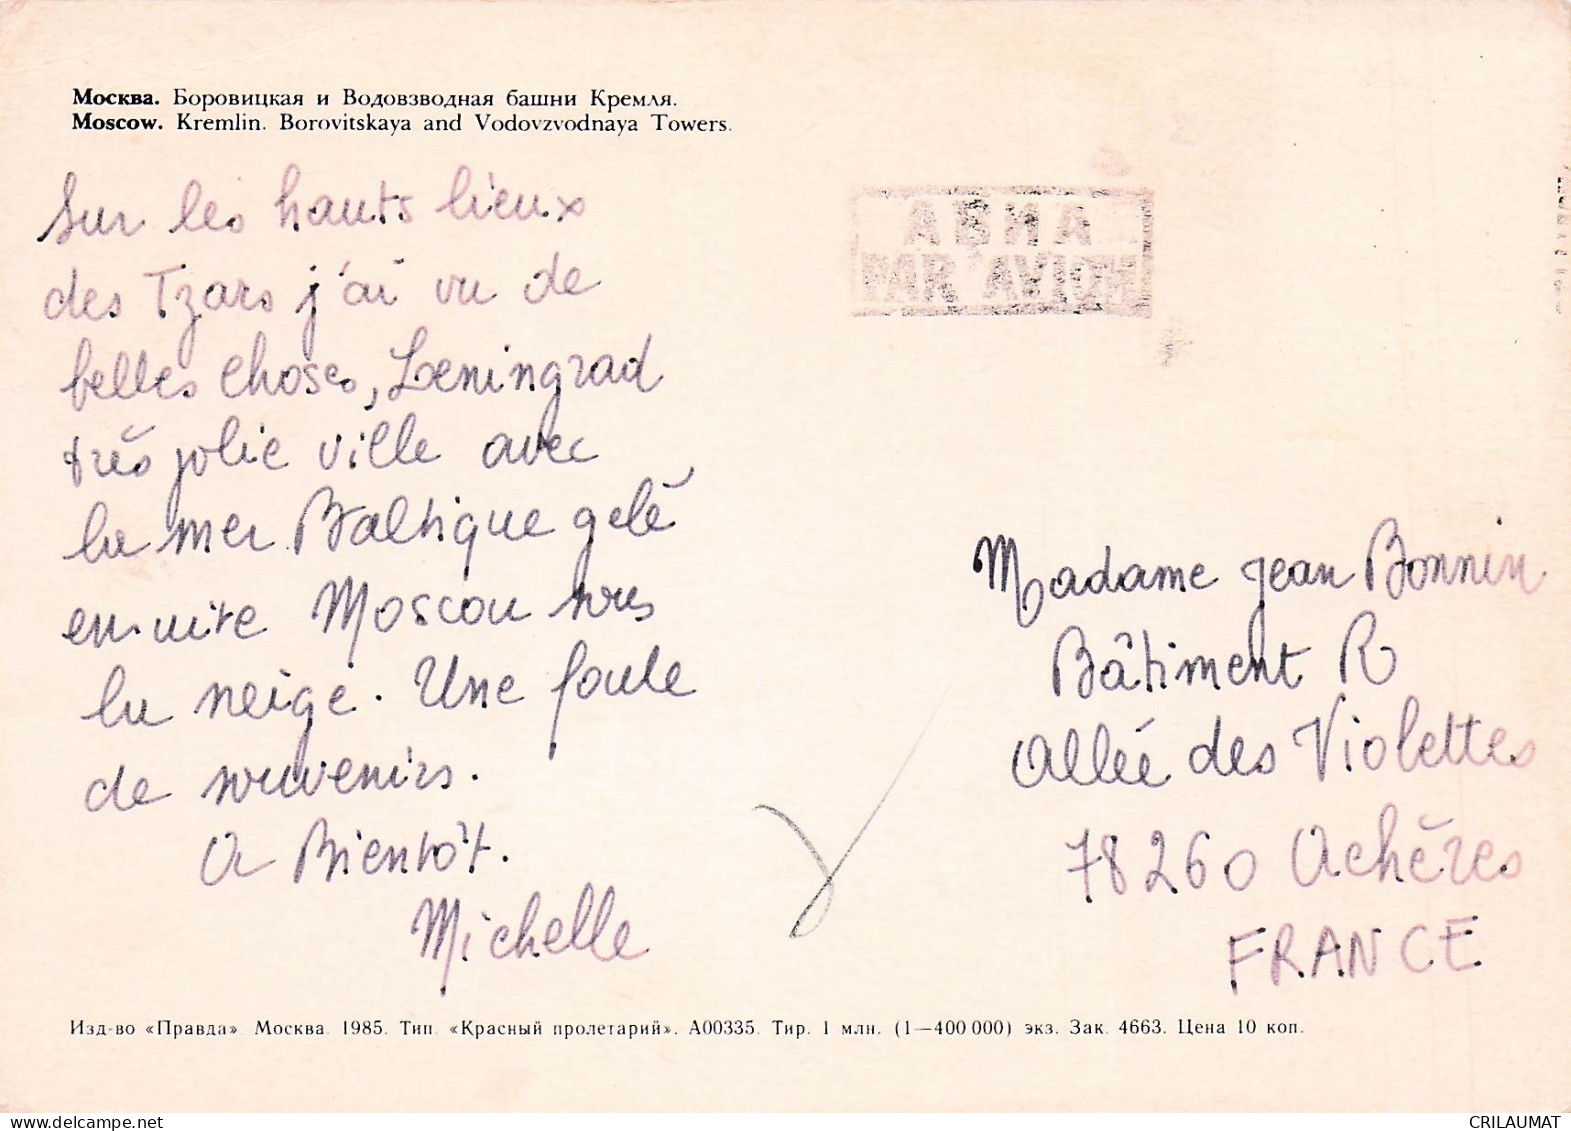 Москва. Боровицкая и Водовзводная башни Кремля.
Moscow. Kremlin. Borovitskaya and Vodovzvodnaya Towers.
Sur les hauts lieux
des Tzars j'ai vu de
belles choses, Leningrad
très jolie ville avec
la mer Baltique gelé
ensuite Moscou sous
la neige. Une foule
de souvenirs.
A Bientôt.
Michelle
АВИА
PAR AVION
Madame Jean Bonnin
Bâtiment R
Allée des Violettes
78260 Achères
FRANCE
Изд-во «Правда» Москва. 1985. Тип. «Красный пролетарий». А00335. Тир. 1 млн. (1—400 000) экз. Зак. 4663. Цена 10 коп.
https://www.delcampe.net
CRILAUMAT